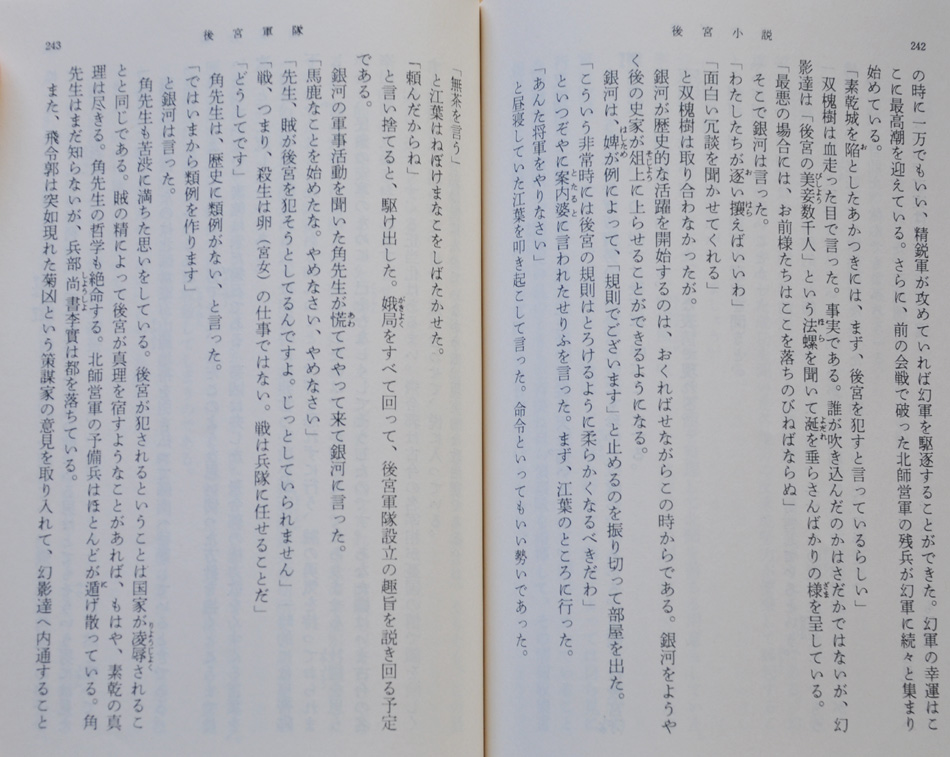 後宮小説
242
の時に一万でもいい、精鋭軍が攻めていれば幻軍を駆逐することができた。幻軍の幸運はこ
こに最高潮を迎えている。さらに、前の会戦で破った北師営軍の残兵が幻軍に続々と集まり
始めている。
「素乾城を陥としたあかつきには、まず、後宮を犯すと言っているらしい」
双槐樹は血走った目で言った。事実である。誰が吹き込んだのかはさだかではないが、幻
影達は「後宮の美妾数千人」という法螺を聞いて涎を垂らさんばかりの様を呈している。
「最悪の場合には、お前様たちはここを落ちのびねばならぬ」
そこで銀河は言った。
「わたしたちが逐い攘えばいいわ」
「面白い冗談を聞かせてくれる」
と双槐樹は取り合わなかったが。
銀河が歴史的な活躍を開始するのは、おくればせながらこの時からである。銀河をようや
く後の史家が俎上に上らせることができるようになる。
銀河は、婢が例によって、「規則でございます」と止めるのを振り切って部屋を出た。
「こういう非常時には後宮の規則はとろけるように柔らかくなるべきだわ」
といつぞやに案内婆に言われたせりふを言った。まず、江葉のところに行った。
「あんた将軍をやりなさい」
と昼寝していた江葉を叩き起こして言った。命令といってもいい勢いであった。
後宮軍隊
243
「無茶を言う」
と江葉はねぼけまなこをしばたかせた。
「頼んだからね」
と言い捨てると、駆け出した。娥局をすべて回って、後宮軍隊設立の趣旨を説き回る予定
である。
銀河の軍事活動を聞いた角先生が慌ててやって来て銀河に言った。
「馬鹿なことを始めたな。やめなさい、やめなさい」
「先生、賊が後宮を犯そうとしてるんですよ。じっとしていられません」
「戦、つまり、殺生は卵（宮女）の仕事ではない。戦は兵隊に任せることだ」
「どうしてです」
角先生は、歴史に類例がない、と言った。
「ではいまから類例を作ります」
と銀河は言った。
角先生も苦渋に満ちた思いをしている。後宮が犯されるということは国家が凌辱されるこ
とと同じである。賊の精によって後宮が真理を宿すようなことがあれば、もはや、素乾の真
理は尽きる。角先生の哲学も絶命する。北師営軍の予備兵はほとんどが遁げ散っている。角
先生はまだ知らないが、兵部尚書李實は都を落ちている。
また、飛令郭は突如現れた菊凶という策謀家の意見を取り入れて、幻影達へ内通すること